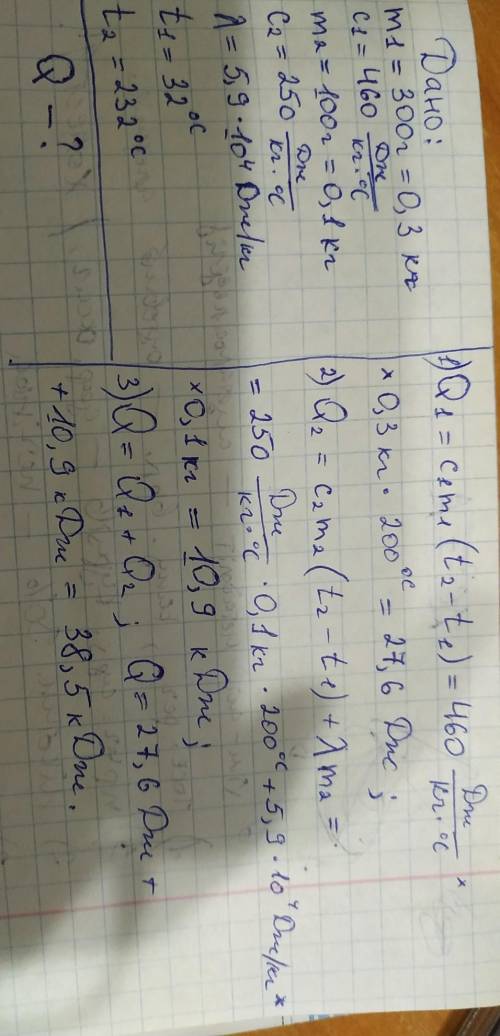 Дано:
m1 = 300г = 0,3 кг
c1 = 460 Дж/кг·°С
m2 = 100г = 0,1 кг
c2 = 250 Дж/кг·°С
λ = 5,9·10⁴ Дж/кг
t1 = 32°С
t2 = 232°С
Q – ?
1) Q1 = c1m1(t2 – t1) = 460 Дж/кг·°С ×
× 0,3 кг · 200°С = 27,6 Дж;
2) Q2 = c2m2(t2 – t1) + λm2 =
= 250 Дж/кг·°С · 0,1 кг · 200°С + 5,9·10⁴ Дж/кг ×
× 0,1 кг = 10,9 кДж;
3) Q = Q1 + Q2; Q = 27,6 Дж +
+ 10,9 кДж = 38,5 кДж.